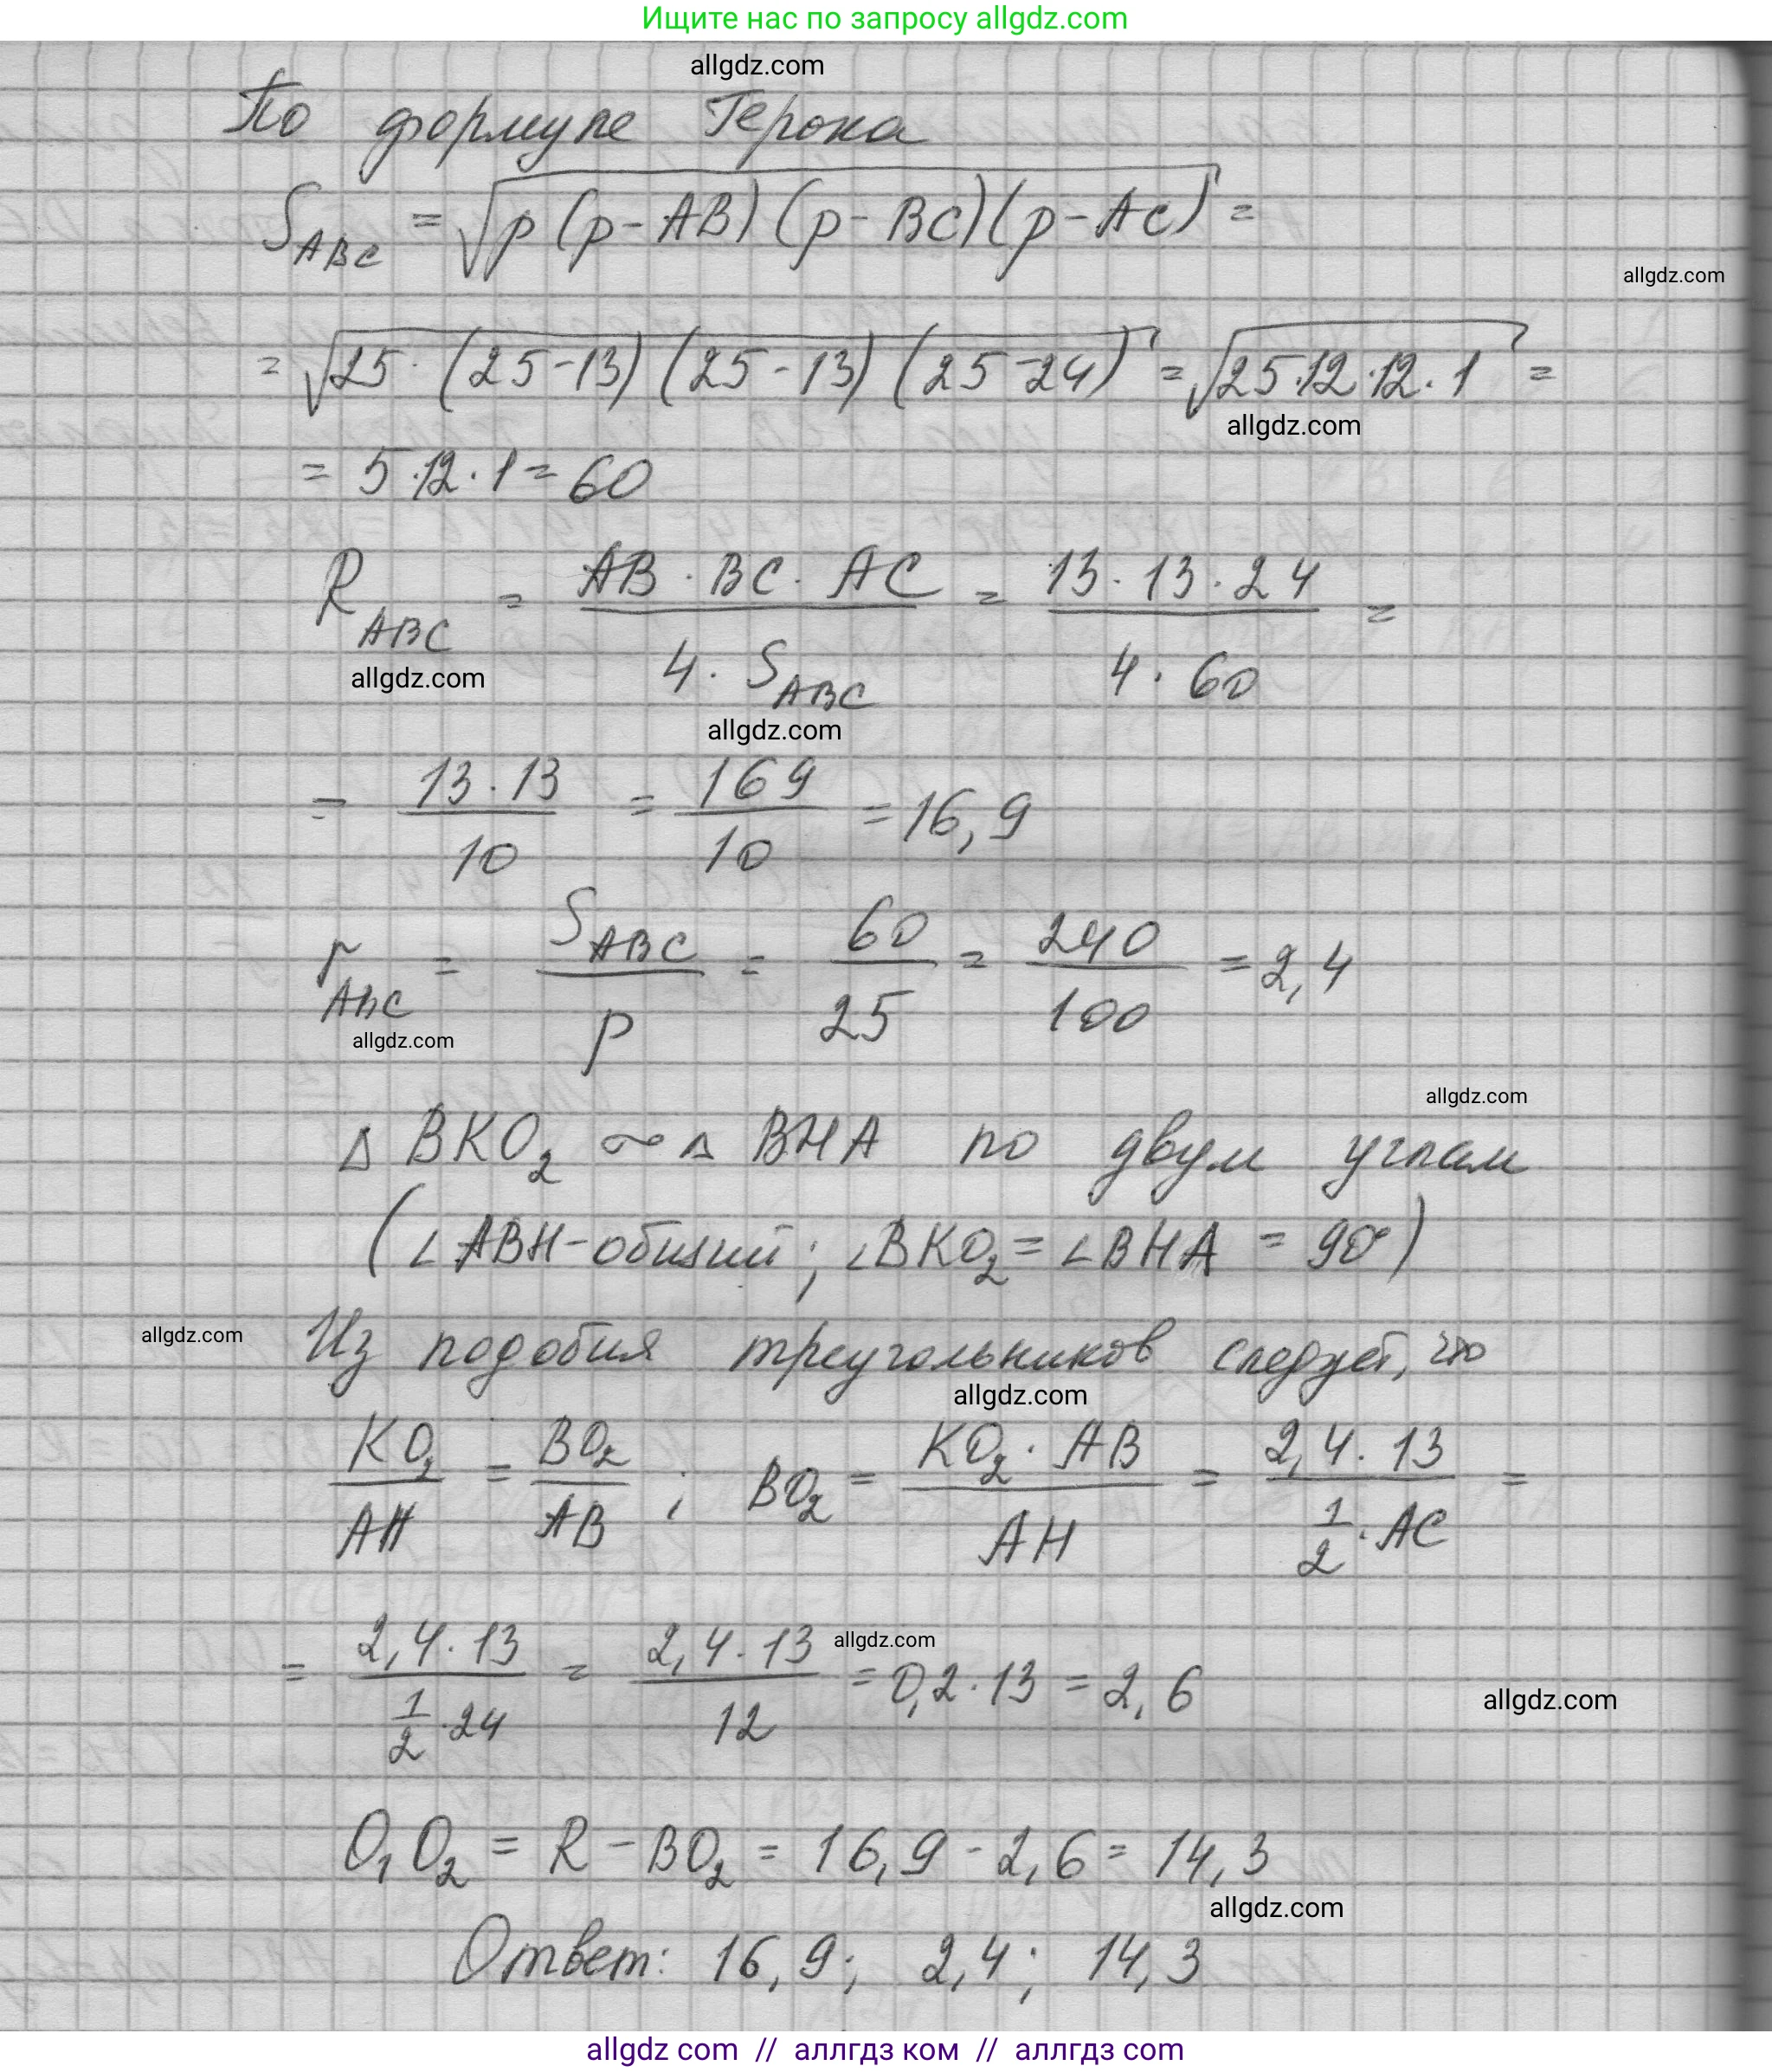 Ищите нас по запросу allgdz.com
allgdz.com
По формуле Герона
S_ABC = √(p(p-AB)(p-BC)(p-AC)) =
allgdz.com
= √(25·(25-13)(25-13)(25-24)) = √(25·12·12·1) =
allgdz.com
= 5·12·1 = 60
R_ABC = (AB·BC·AC)/(4·S_ABC) = (13·13·24)/(4·60) =
allgdz.com
allgdz.com
= (13·13)/10 = 169/10 = 16,9
r_ABC = S_ABC/p = 60/25 = 240/100 = 2,4
allgdz.com
allgdz.com
△ BKO₂ ~ △ BHA по двум углам
(∠ABH-общий; ∠BKO₂ = ∠BHA = 90°)
allgdz.com
Из подобия треугольников следует, что
allgdz.com
KO₂/AH = BO₂/AB ; BO₂ = (KO₂·AB)/AH = (2,4·13)/(1/2·AC) =
= (2,4·13)/(1/2·24) = (2,4·13)/12 = 0,2·13 = 2,6
allgdz.com
allgdz.com
O₁O₂ = R - BO₂ = 16,9 - 2,6 = 14,3
allgdz.com
Ответ: 16,9; 2,4; 14,3
allgdz.com // аллгдз ком // аллгдз com